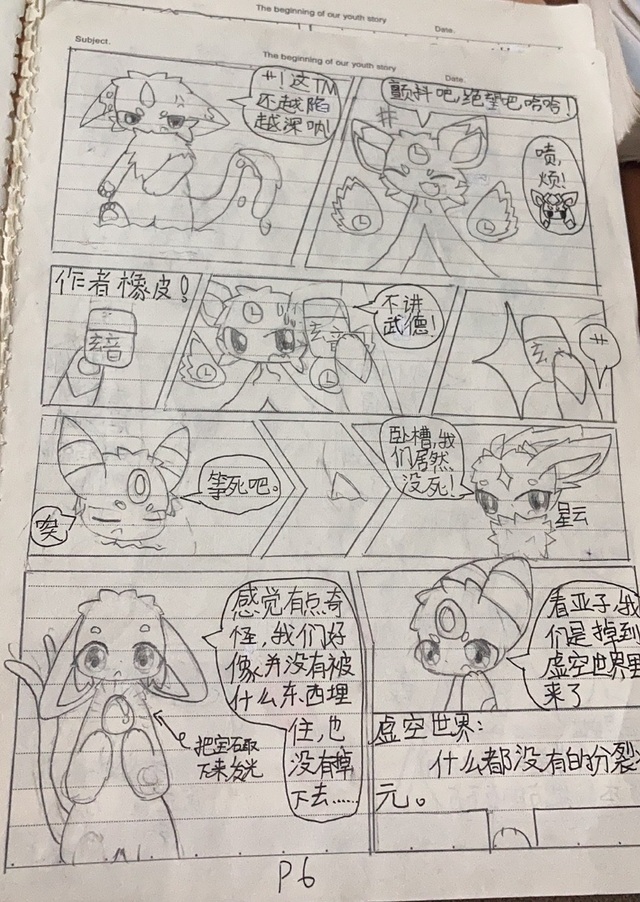 The beginning of our youth story
Date.
Subject.
The beginning of our youth story
Date.
井!这TM
还越陷
越深呐!
颤抖吧,绝望吧哈哈!
井
啧,
烦!
作者橡皮!
玄音
玄音
不讲
武德!
玄
井
等死吧。
唉
卧槽,我
们居然
没死!
星云
感觉有点奇
怪,我们好
像并没有被
什么东西埋
住,也
没有掉
下去……
把宝石取
下来发光
看亚子,我
们是掉到
虚空世界里
来了
虚空世界:
什么都没有的扮裂
元。
P6